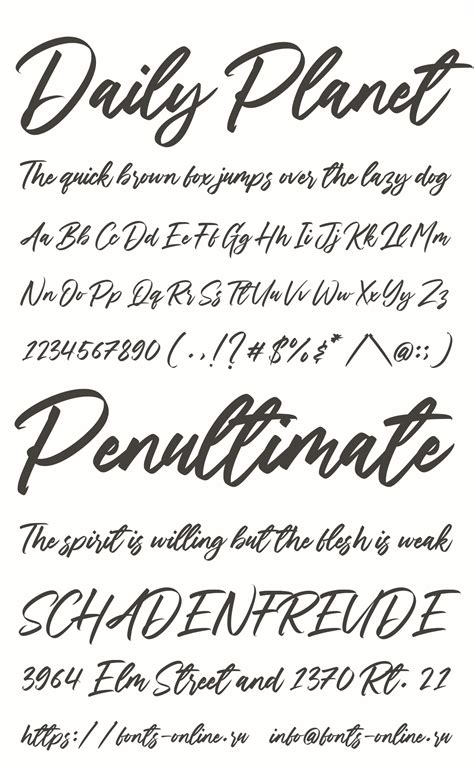 Daily Planet
The quick brown fox jumps over the lazy dog
Aa Bb Cc Dd Ee Ff Gg Hh Ii Jj Kk Ll Mm
Nn Oo Pp Qq Rr Ss Tt Uu Vv Ww Xx Yy Zz
1234567890 ( . , ! ? # $ % & * / \ @ : ; )
Penultimate
The spirit is willing but the flesh is weak
SCHADENFREUDE
3964 Elm Street and 1370 Rt. 21
https://fonts-online.ru info@fonts-online.ru